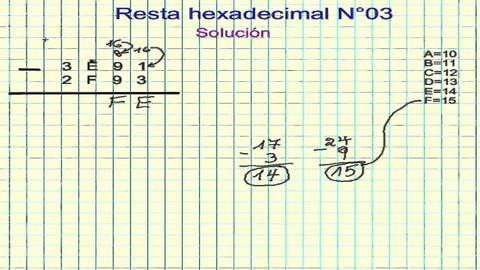 Resta hexadecimal N°03
Solución
16
8 16
3 E 9 1
2 F 9 3
F E
A=10
B=11
C=12
D=13
E=14
F=15
17
- 3
14
24
- 9
15